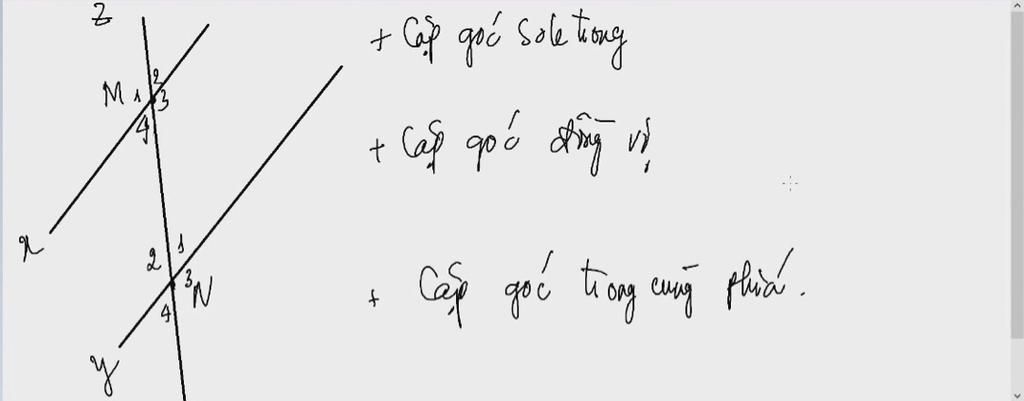 z
+ Cặp góc sole trong
M 1 2 3 4
+ Cặp góc đồng vị
x
2 1
3 N
4
+ Cặp góc trong cùng phía.
y